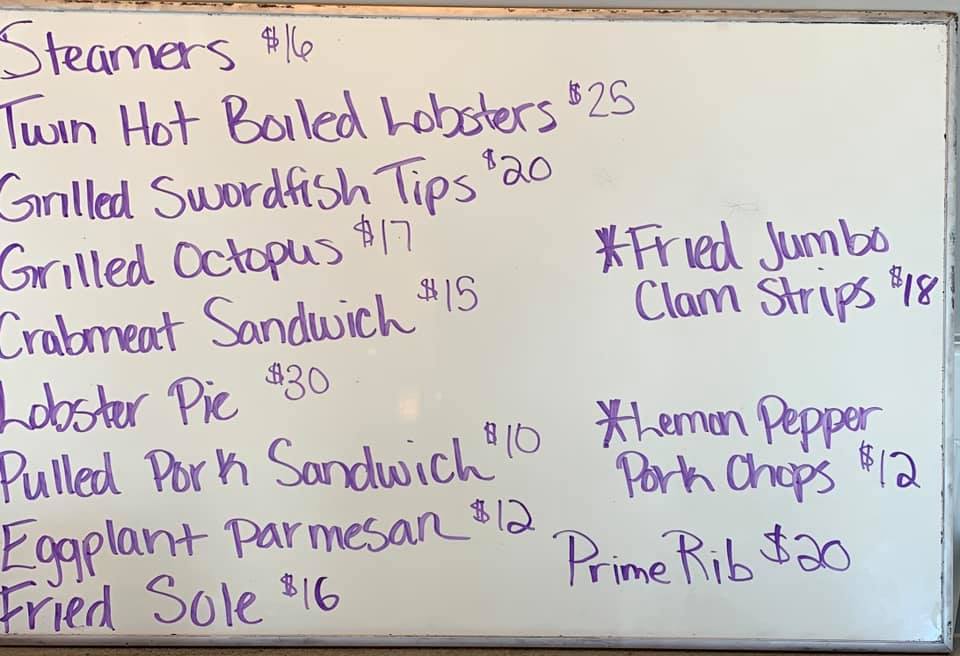 Steamers $16
Twin Hot Boiled Lobsters $25
Grilled Swordfish Tips $20
Grilled Octopus $17
Crabmeat Sandwich $15
Lobster Pie $30
Pulled Pork Sandwich $10
Eggplant Parmesan $12
Fried Sole $16
*Fried Jumbo
Clam Strips $18
*Lemon Pepper
Pork Chops $12
Prime Rib $20